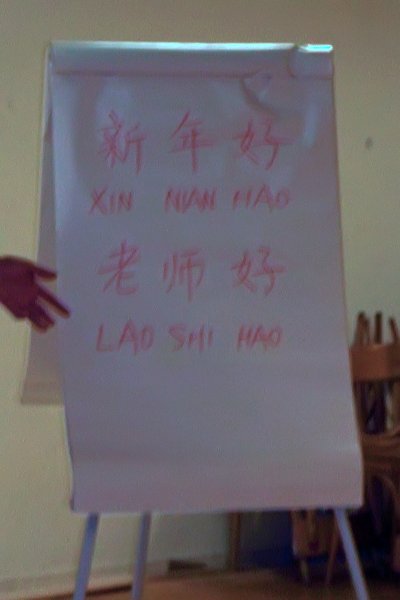 新年好
XIN NIAN HAO
老师好
LAO SHI HAO